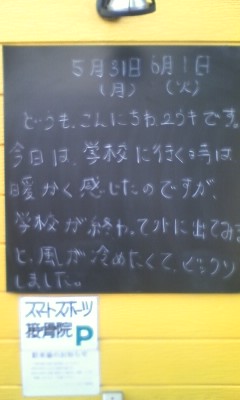 5月31日 6月1日
(月) (火)
どうも、こんにちわ、ユウキです。
今日は、学校に行く時は
暖かく感じたのですが、
学校が終わって外に出てみる
と、風が冷めたくて、ビックリ
しました。
スマートスポーツ
接骨院 P